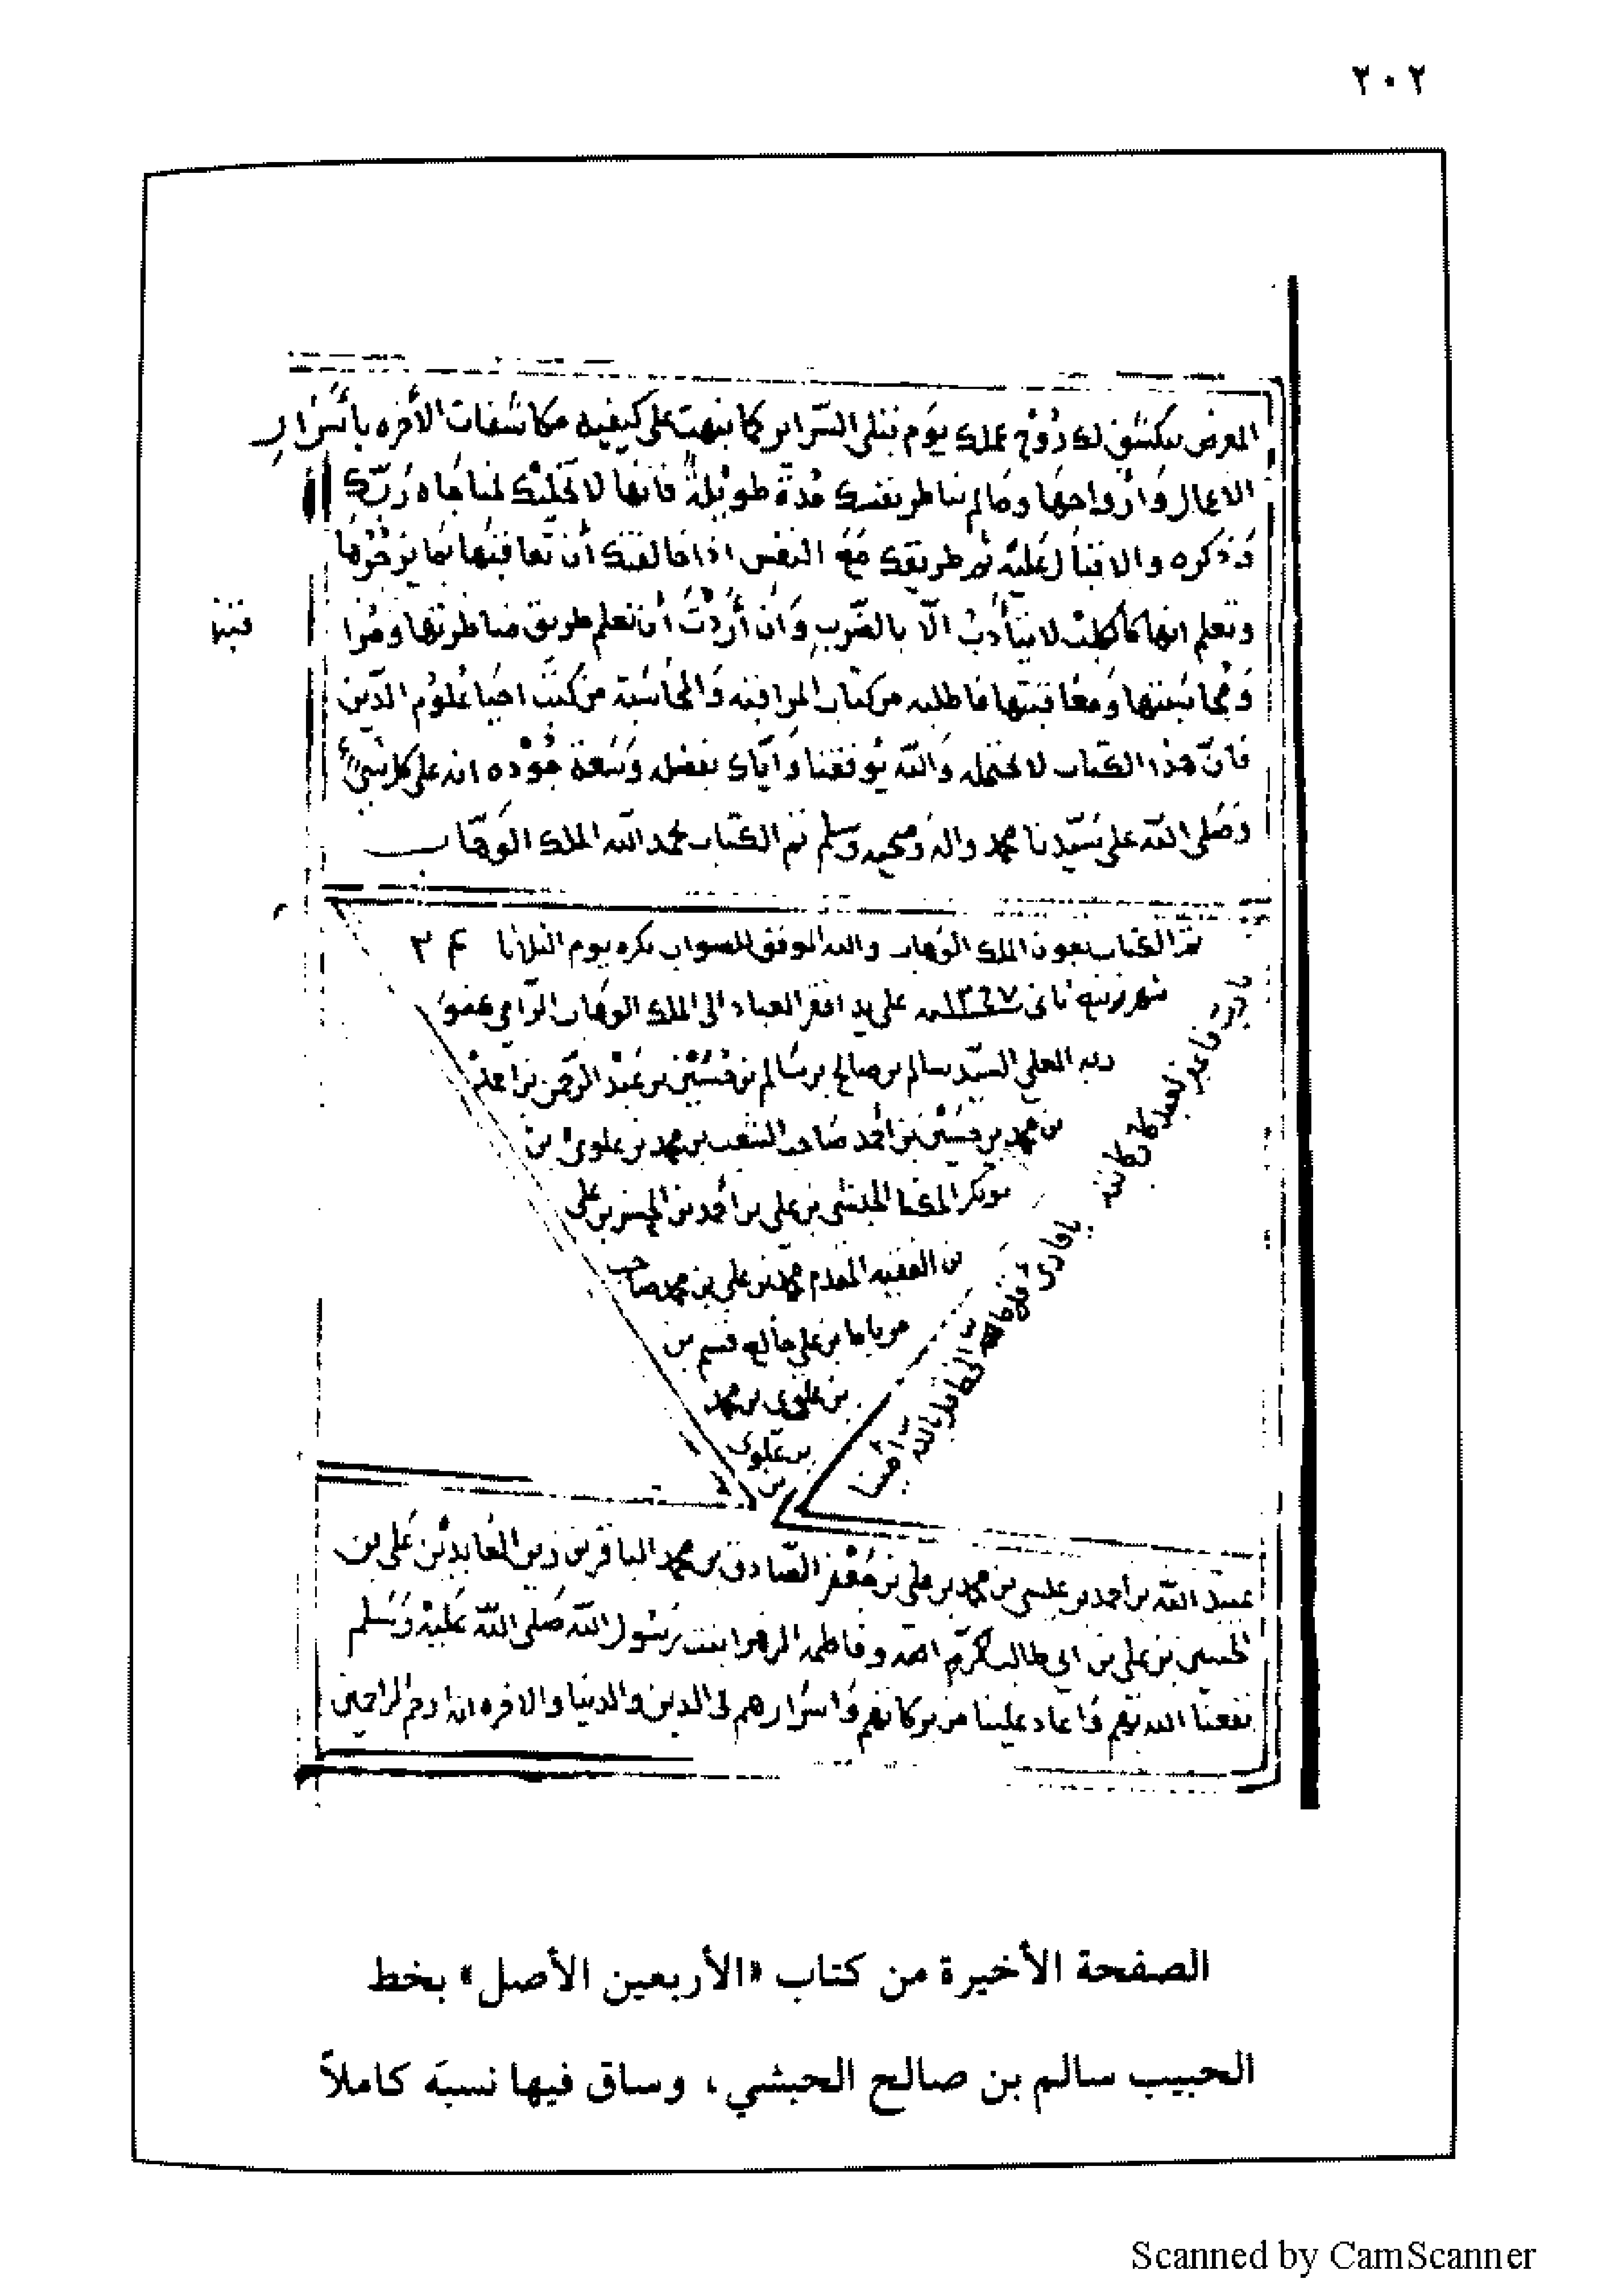 ٢٠٢
العرض سكشف لك روح عملك يوم تبلى السراير كما نبهت على كيفيه مكاشفات الأخره بأسرار
الاعمال وأرواحها ومالم تناظر نفسك مدة طويلة فانها لا تخليك لمناجاه ربك
وذكره والاقبال عليه ثم طريقك مع النفس اذا خالفتك أن تعاقبها بما يزجرها
وتعلم انها كالكلب لا يتأدب الا بالضرب وان أردت أن تعلم طريق مناظرتها
ومحاسبتها ومعاقبتها فاطلبه من كتاب المراقبه والمحاسبة من كتب احيا علوم الدين
فان هذا الكتاب لا يحتمله والله يوفقنا واياك بفضله وسعة جوده انه على كل شيء
وصلى الله على سيدنا محمد واله وصحبه وسلم تم الكتاب بحمد الله الملك الوهاب
تم الكتاب بعون الملك الوهاب والله الموفق للصواب بكره يوم الثلاثا
شهر ربيع ثاني على يد افقر العباد الى الملك الوهاب الراجي عفو
ربه العلي السيد سالم بن صالح بن سالم بن حسين بن عبد الرحمن بن
بن محمد بن حسين بن أحمد صاحب الشعب بن محمد بن علوي بن
الحبشي بن علي بن أحمد بن محمد بن علي
بن الفقيه المقدم محمد بن علي بن محمد صاحب
مرباط بن علي خالع قسم بن
بن علوي بن محمد
بن علوي
بن
عبيد الله بن أحمد بن عيسى بن محمد بن علي بن جعفر الصادق بن محمد الباقر بن زين العابدين علي بن
الحسين بن علي بن ابي طالب كرم الله وفاطمه الزهرا بنت رسول الله صلى الله عليه وسلم
نفعنا الله بهم واعاد علينا من بركاتهم واسرارهم في الدين والدنيا والاخره انه ارحم الراحمين
الصفحة الأخيرة من كتاب «الأربعين الأصل» بخط
الحبيب سالم بن صالح الحبشي، وساق فيها نسبَه كاملاً
Scanned by CamScanner